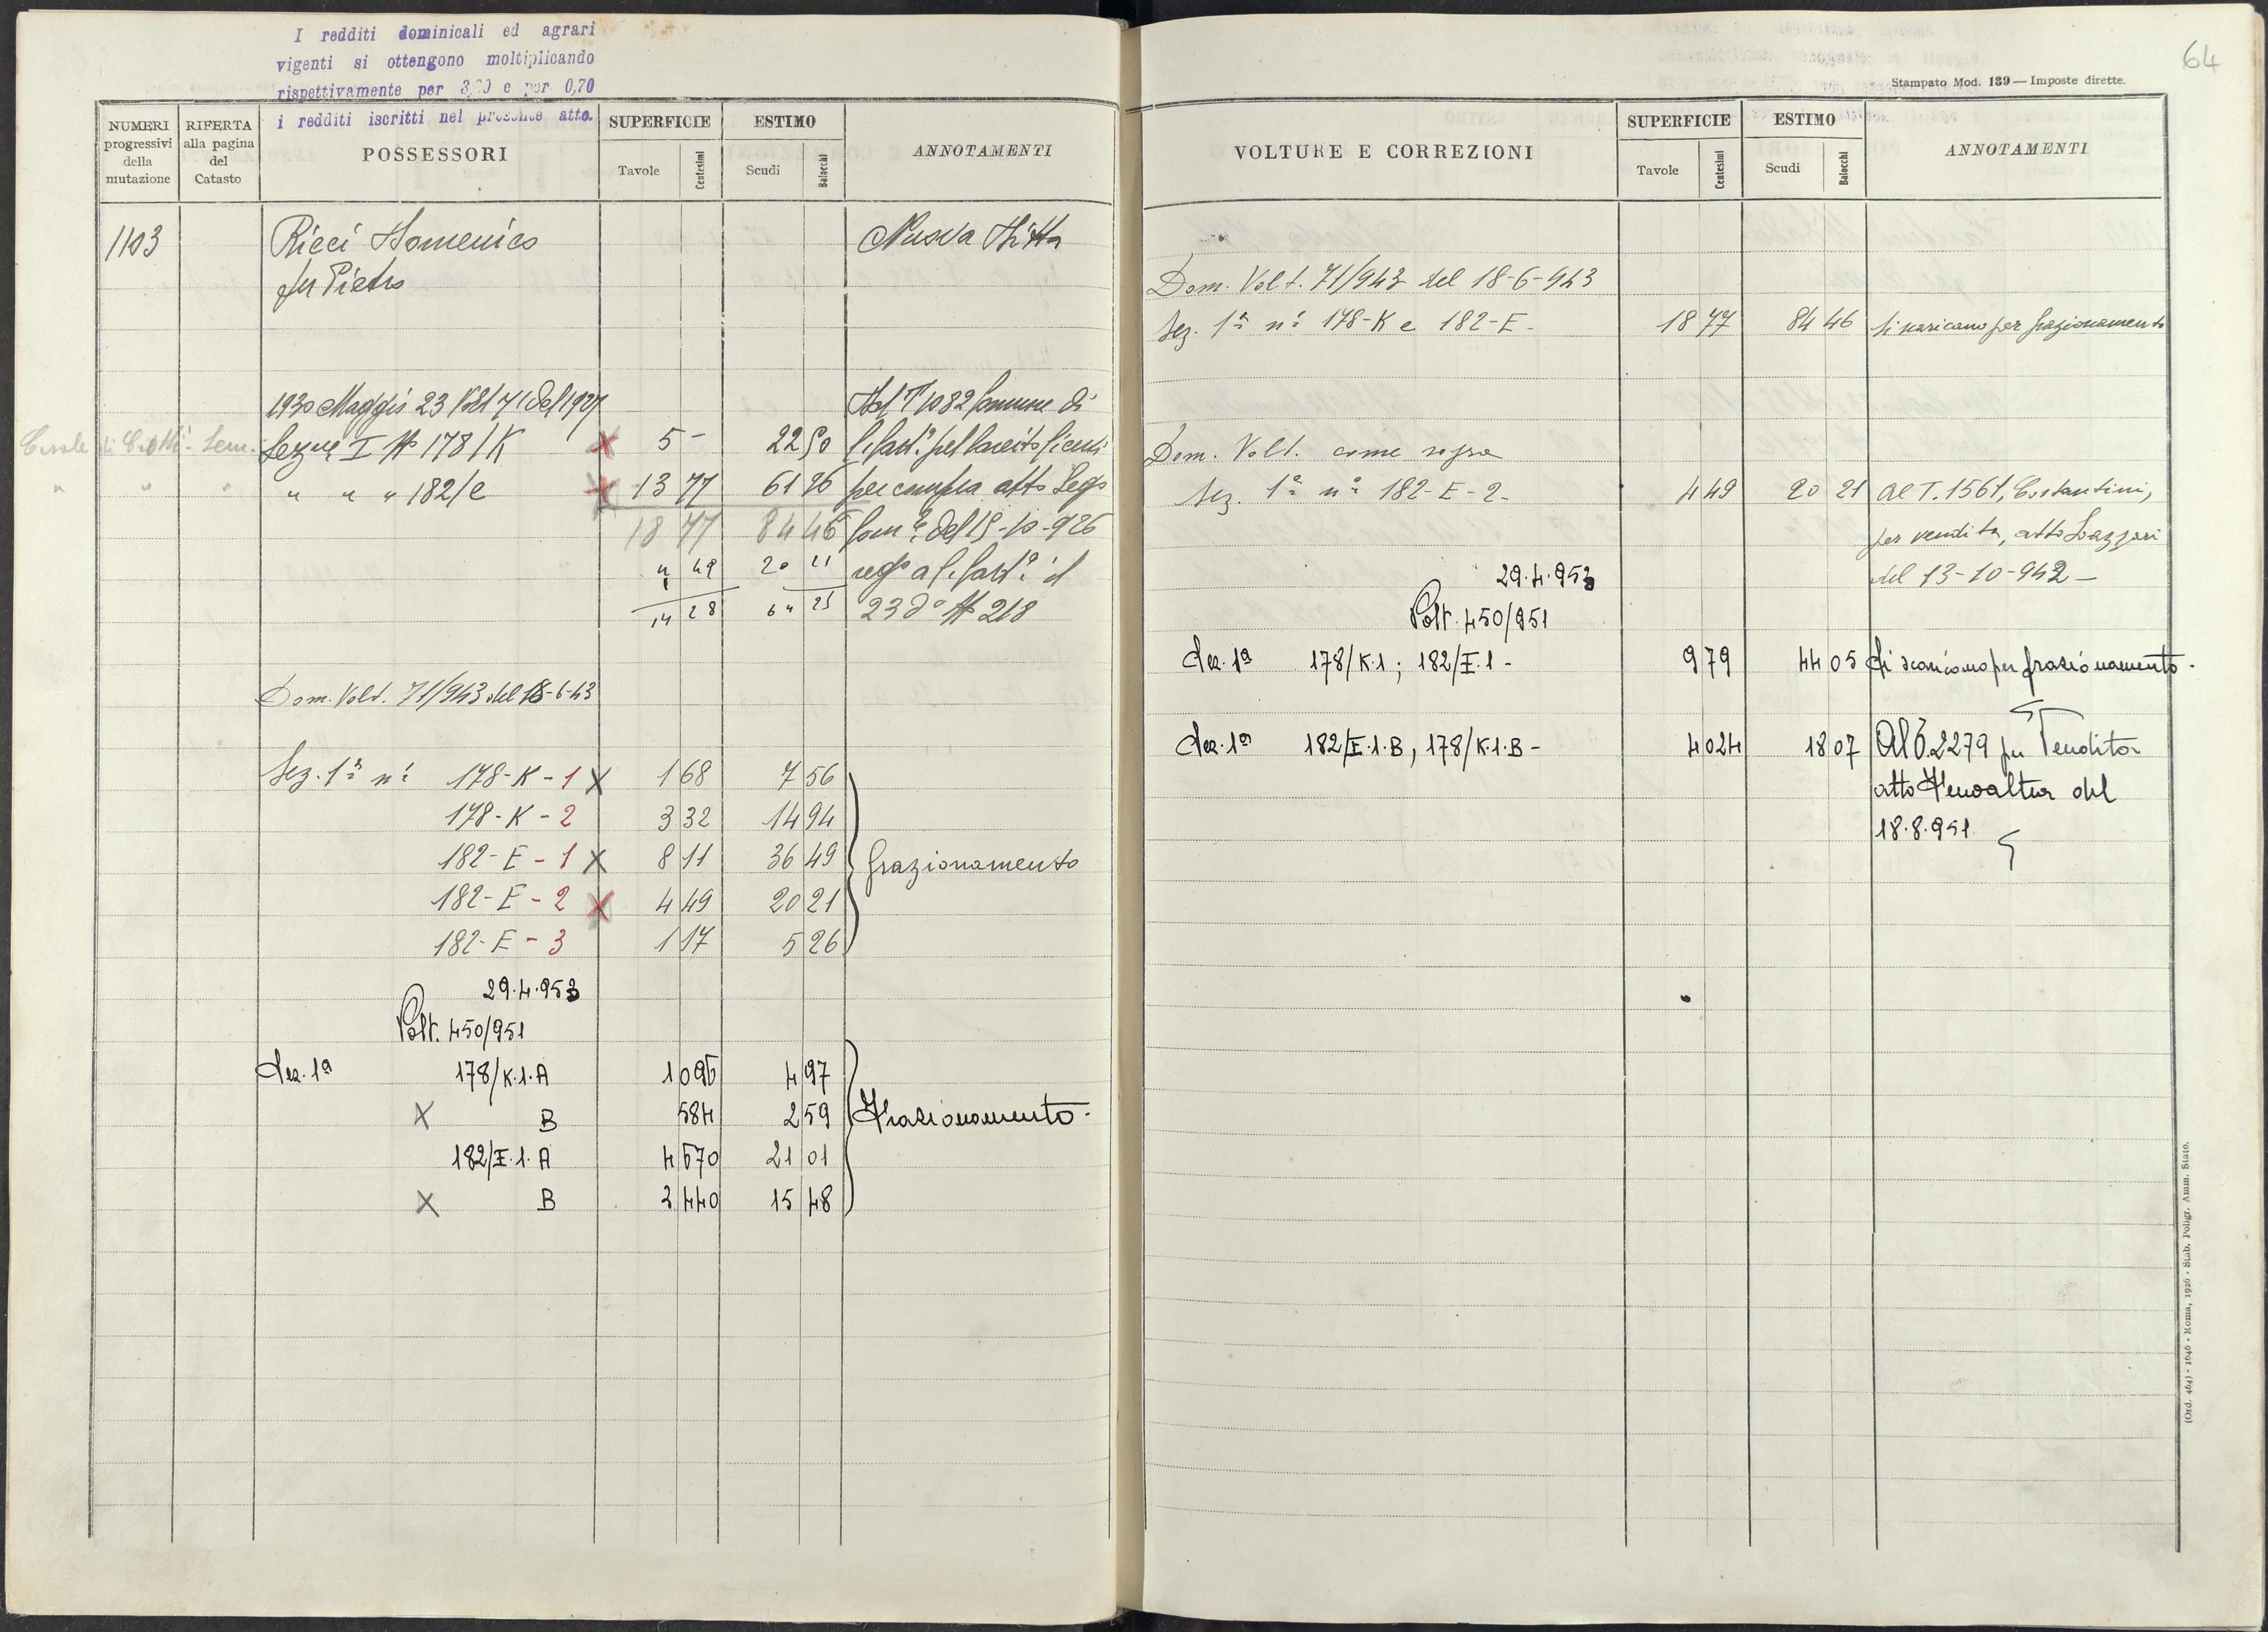 I redditi dominicali ed agrari
vigenti si ottengono moltiplicando
rispettivamente per e per 0,70
i redditi iscritti nel presente atto.
NUMERI progressivi della mutazione
RIFERTA alla pagina del Catasto
POSSESSORI
SUPERFICIE
Tavole Centesimi
ESTIMO
Scudi Baiocchi
ANNOTAMENTI
1103 Ricci Domenico Nuova Ditta
fu Pietro
1930 Maggio 23 Volt 71 del 1927 Dal T 1082 Comune di
Sezne I N 178/K X 5 - 22 50
" " " 182/e X 13 77 61 96 per compra atto Sego
18 77 84 46 del 15-10-926
4 49 20 21
14 28 64 25 23 do N 218
Dom. Volt. 71/943 del 18-6-43
Sez. 1a ni 178-K-1 X 1 68 7 56
178-K-2 3 32 14 94
182-E-1 X 8 11 36 49 frazionamento
182-E-2 X 4 49 20 21
182-E-3 1 17 5 26
29.4.953
Volt. 450/951
Sez. 1a 178/K.1.A 1 096 4 97
X B 584 2 59 Frazionamento.
182/E.1.A 4 670 21 01
X B 3 440 15 48
64
Stampato Mod. 139 — Imposte dirette.
VOLTURE E CORREZIONI
SUPERFICIE
Tavole Centesimi
ESTIMO
Scudi Baiocchi
ANNOTAMENTI
Dom. Volt. 71/943 del 18-6-943
Sez. 1a ni 178-K e 182-E- 18 77 84 46 Si scaricano per frazionamento
Dom. Volt. come sopra
Sez. 1a no 182-E-2- 4 49 20 21 Al T. 1561, Costantini,
per vendita, atto Lazzari
del 13-10-942-
29.4.953
Volt. 450/951
Sez. 1a 178/K.1; 182/E.1- 9 79 44 05 Si scaricano per frazionamento.
Sez. 1a 182/E.1.B, 178/K.1.B- 4 024 18 07 Al T. 2279 per Vendita
atto del
18.8.951
(Ord. 464) - 1646 - Roma, 1926 - Stab. Poligr. Amm. Stato.